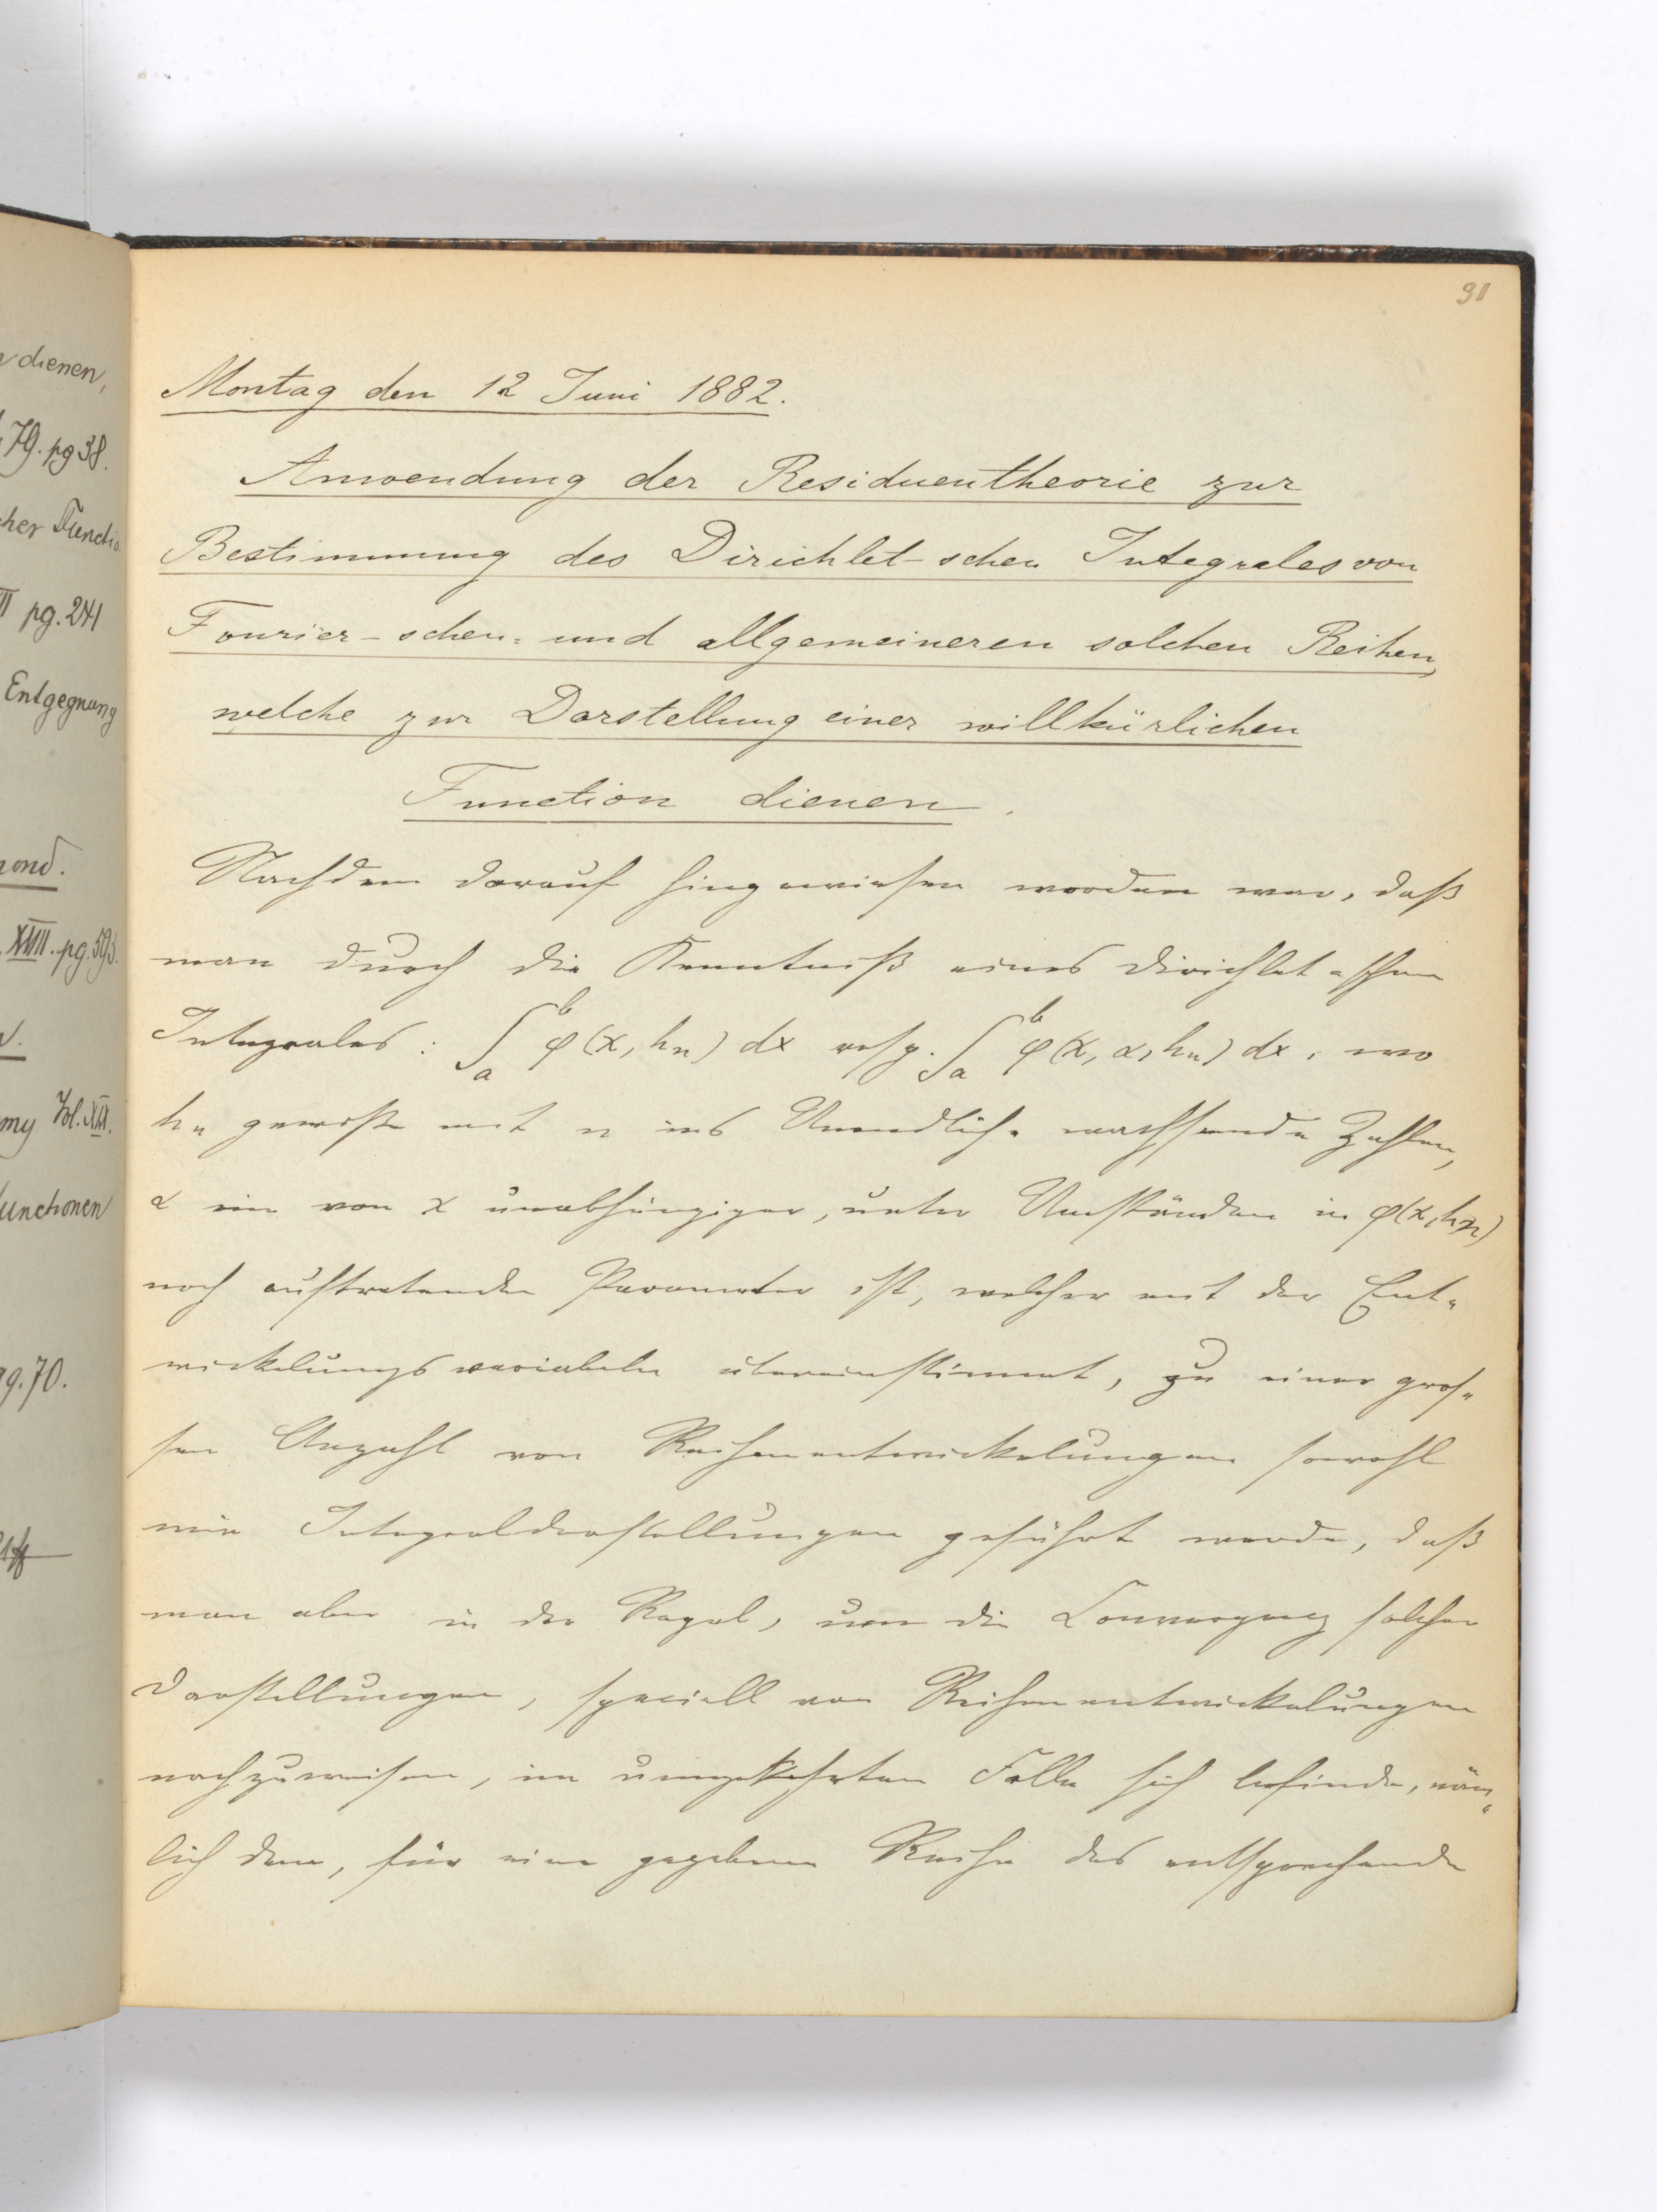 dienen,
79. pg 38.
cher Functio
II pg. 241
Entgegnung
mond.
XVIII. pg. 593.
my Vol. XIII.
unctionen
pg. 70.
91
Montag den 12 Juni 1882.
Anwendung der Residuentheorie zur
Bestimmung des Dirichlet-schen Integrales von
Fourier-schen= und allgemeineren solchen Reihen,
welche zur Darstellung einer willkürlichen
Function dienen.
Nachdem darauf hingewiesen worden war, daß
man durch die Kenntniß eines Dirichlet-schen
Integrales: ∫_a^b φ(x, h_n) dx resp. ∫_a^b φ(x, α, h_n) dx, wo
h_n gewisse mit n ins Unendliche wachsende Zahlen,
α ein von x unabhängiger, unter Umständen in φ(x, h_n)
noch auftretender Parameter ist, welcher mit der Ent=
wickelungsvariabeln übereinstimmt, zu einer gros=
sen Anzahl von Reihenentwickelungen sowohl
wie Integraldarstellungen geführt werde, daß
man aber in der Regel, um die Convergenz solcher
Darstellungen, speciell von Reihenentwickelungen
nachzuweisen, im umgekehrten Falle sich befinde, näm=
lich dem, für eine gegebene Reihe das entsprechende